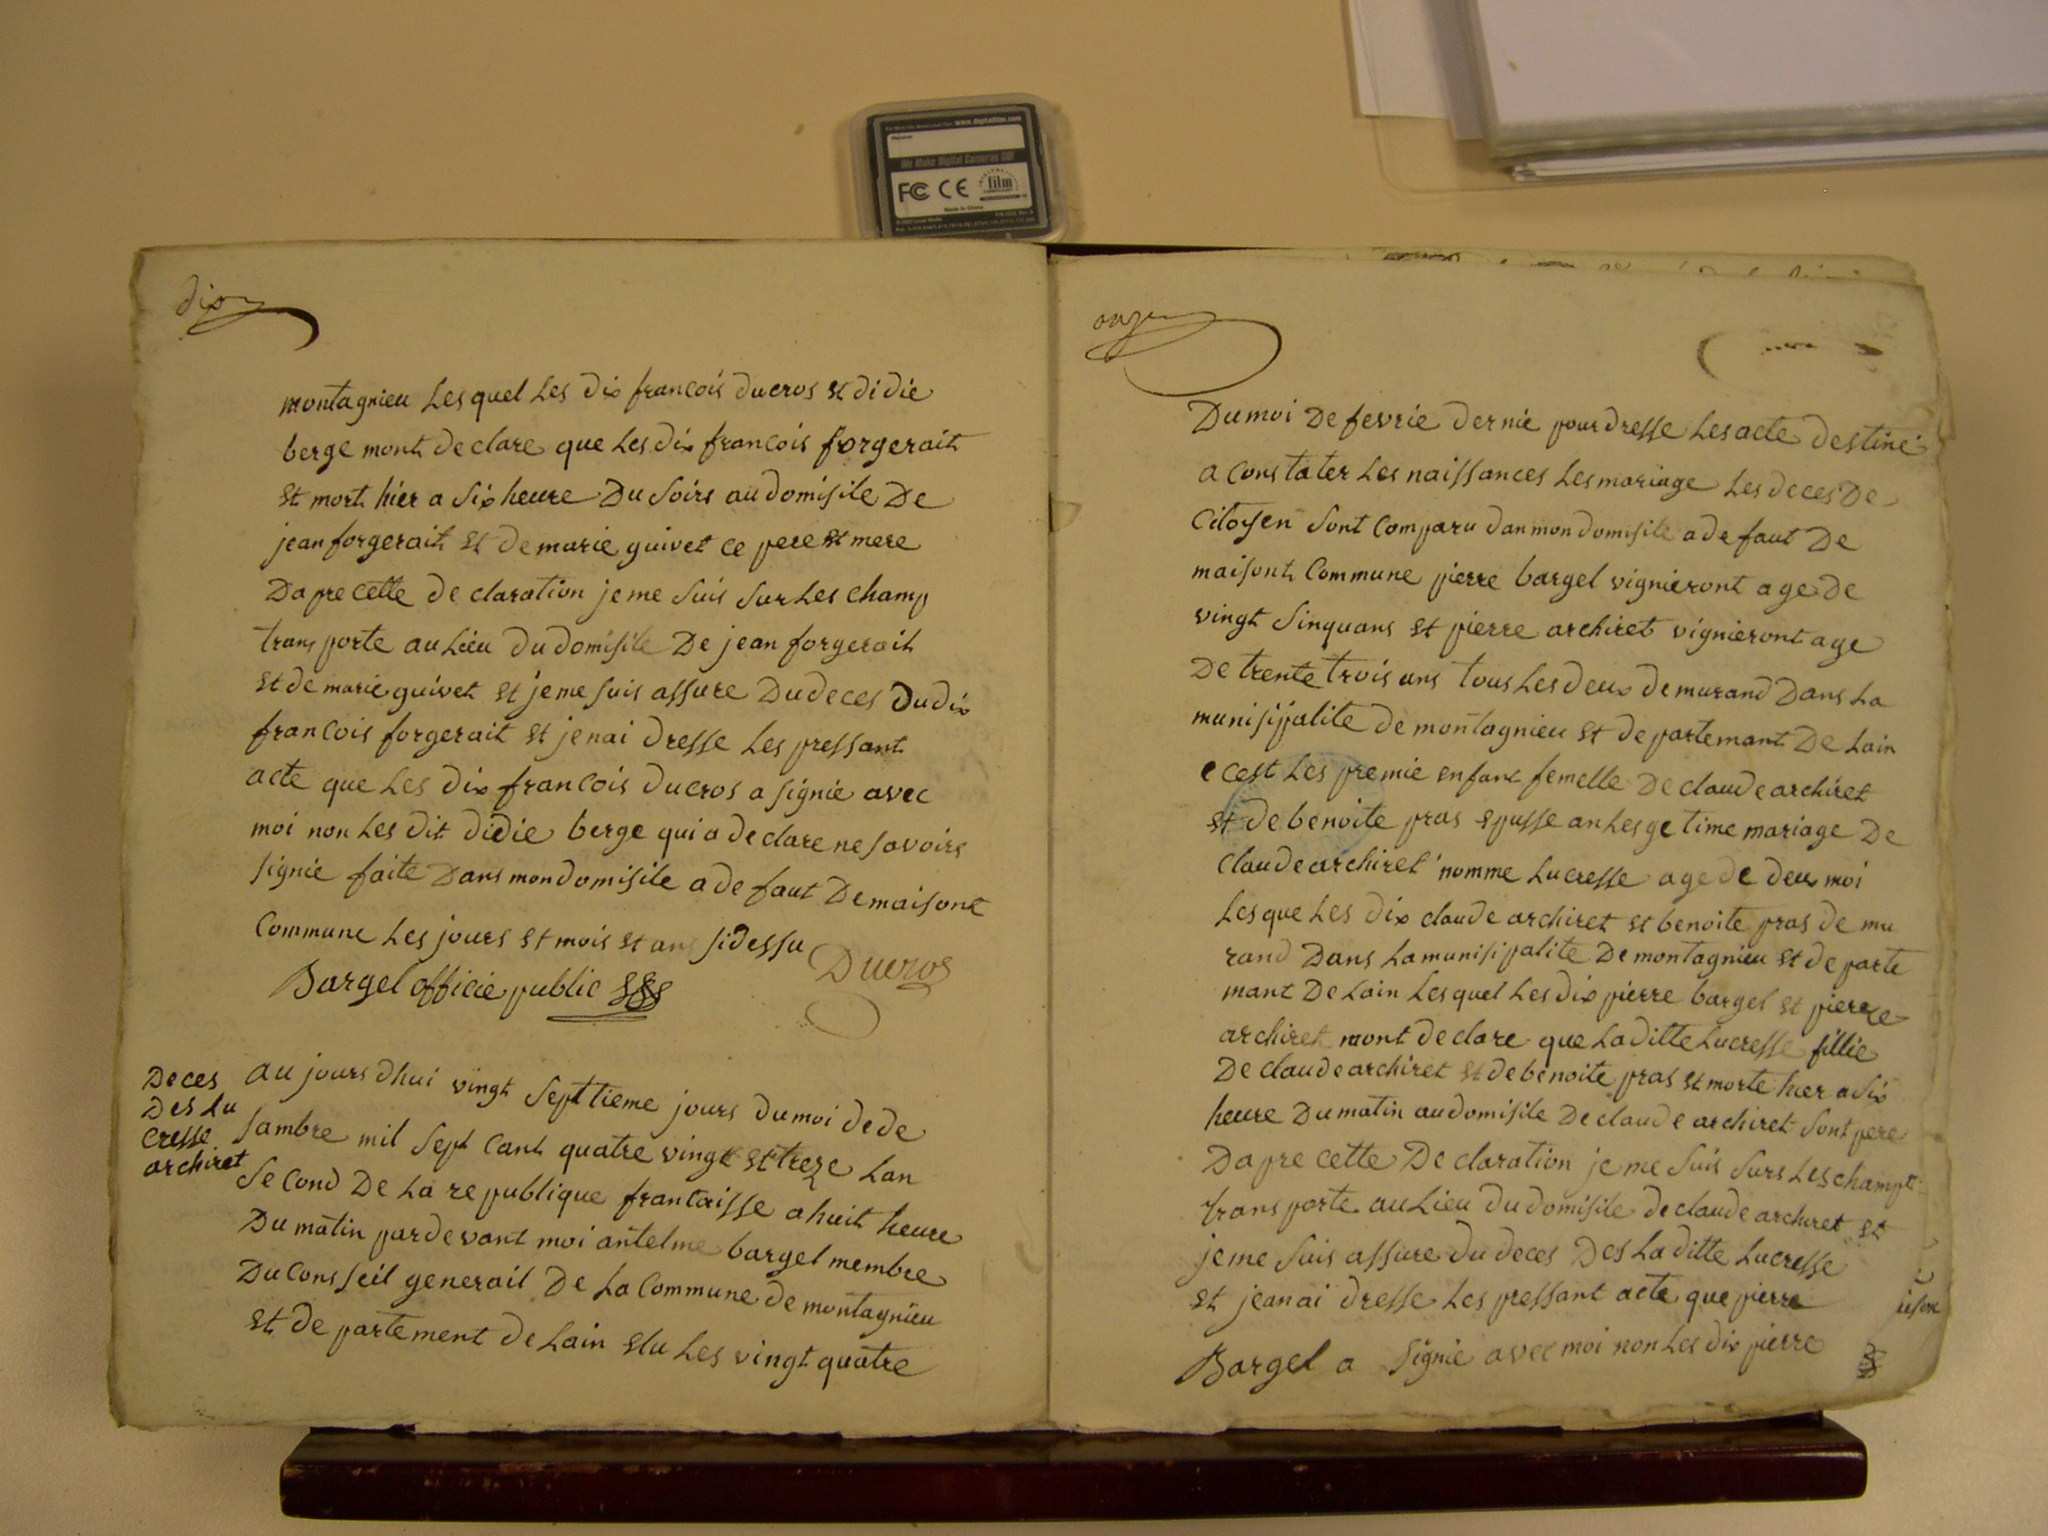 www.digitalfilm.com
We Make Digital Cameras GO!
FC CE
film
Made in China
dix
montagnieu Les quel Les dix francois ducros et didie
berge mont declare que Les dix francois forgerait
et mort hier a six heure Du soirs au domisile De
jean forgerait et de marie guivet ce pere et mere
Dapre cette declaration je me suis sur Les champ
transporte au Lieu du domisile De jean forgerait
et de marie guivet et je me suis assure Du deces Du dix
francois forgerait et jenai dresse Les pressant
acte que Les dix francois ducros a signie avec
moi non Les dit didie berge qui a declare ne savoirs
signie faite Dans mon domisile a defaut De maisont
Commune Les jours et mois et ans sidessu
Ducros
Bargel officie public
Deces
Des Lu
cresse
archiret
au jours dhui vingt septtieme jours du moi de de
sambre mil sept cant quatre vingt et treze Lan
Second De La republique francaisse a huit heure
Du matin par devant moi antelme bargel membre
Du Consseil generail De La Commune de montagnieu
et departement de Lain elu Les vingt quatre
onze
Du moi De fevrie dernie pour dresse Les acte destine
a constater Les naissances Les mariage Les deces De
Citoyen sont comparu dan mon domisile a defaut De
maisont Commune pierre bargel vignieront age de
vingt sinquans et pierre archiret vignieront age
De trente trois ans tous Les deux demurand Dans La
munisipalite de montagnieu et departemant De Lain
e cest Les premie enfant femelle De claude archiret
et de benoite pras epusse an Lesgetime mariage De
claude archiret nomme Lucresse age de deux moi
Les que Les dix claude archiret et benoite pras de mu
rand Dans La munisipalite De montagnieu et departe
mant De Lain Les quel Les dix pierre bargel et pierre
archiret mont declare que La ditte Lucresse fillie
De claude archiret et de benoite pras et morte hier a six
heure Du matin au domisile De claude archiret sont pere
Dapre cette Declaration je me suis surs Les champt
transporte au Lieu du domisile de claude archiret et
je me suis assure du deces Des La ditte Lucresse
et jeanai dresse Les pressant acte que pierre
Bargel a signie avec moi non Les dix pierre